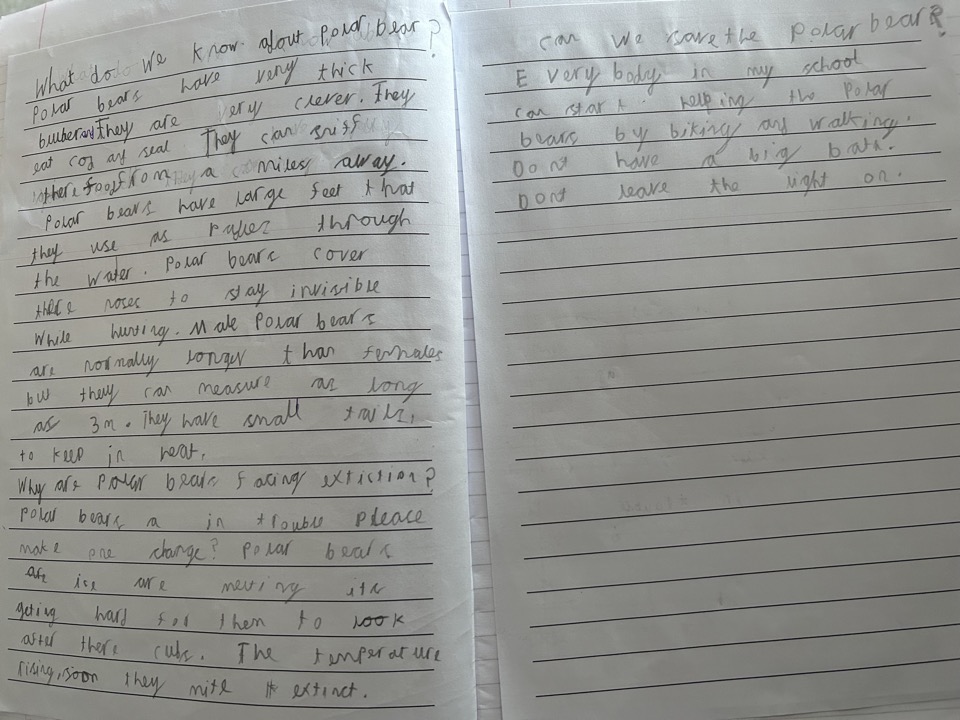 What do We know about Polar bear?
Polar bears have very thick
bubber and They are very clever. They
eat cog and seal They can sniff
there food from a miles away.
Polar bears have large feet that
they use as through
the water. Polar bears cover
there noses to stay invisible
While hunting. Male Polar bears
are normally longer than females
but they can measure as long
as 3m. They have small tails,
to keep in heat.
Why are Polar bears facing extiction?
Polar bears a in trouble Please
make one change? Polar bears
are ice are melting its
geting hard for them to look
after there cubs. The temperature
rising, soon they mite extinct.
Can We save the Polar bear?
Every body in my school
can start helping the Polar
bears by biking and walking.
Dont have a big bath.
Dont leave the light on.